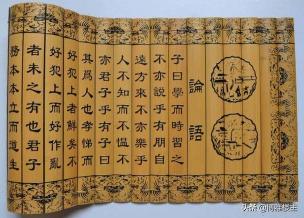 論語
子曰學而時習之
不亦說乎有朋自
遠方來不亦樂乎
人不知而不慍不
亦君子乎有子曰
其爲人也孝悌而
好犯上者鮮矣不
好犯上而好作亂
者未之有也君子
務本本立而道生
头条